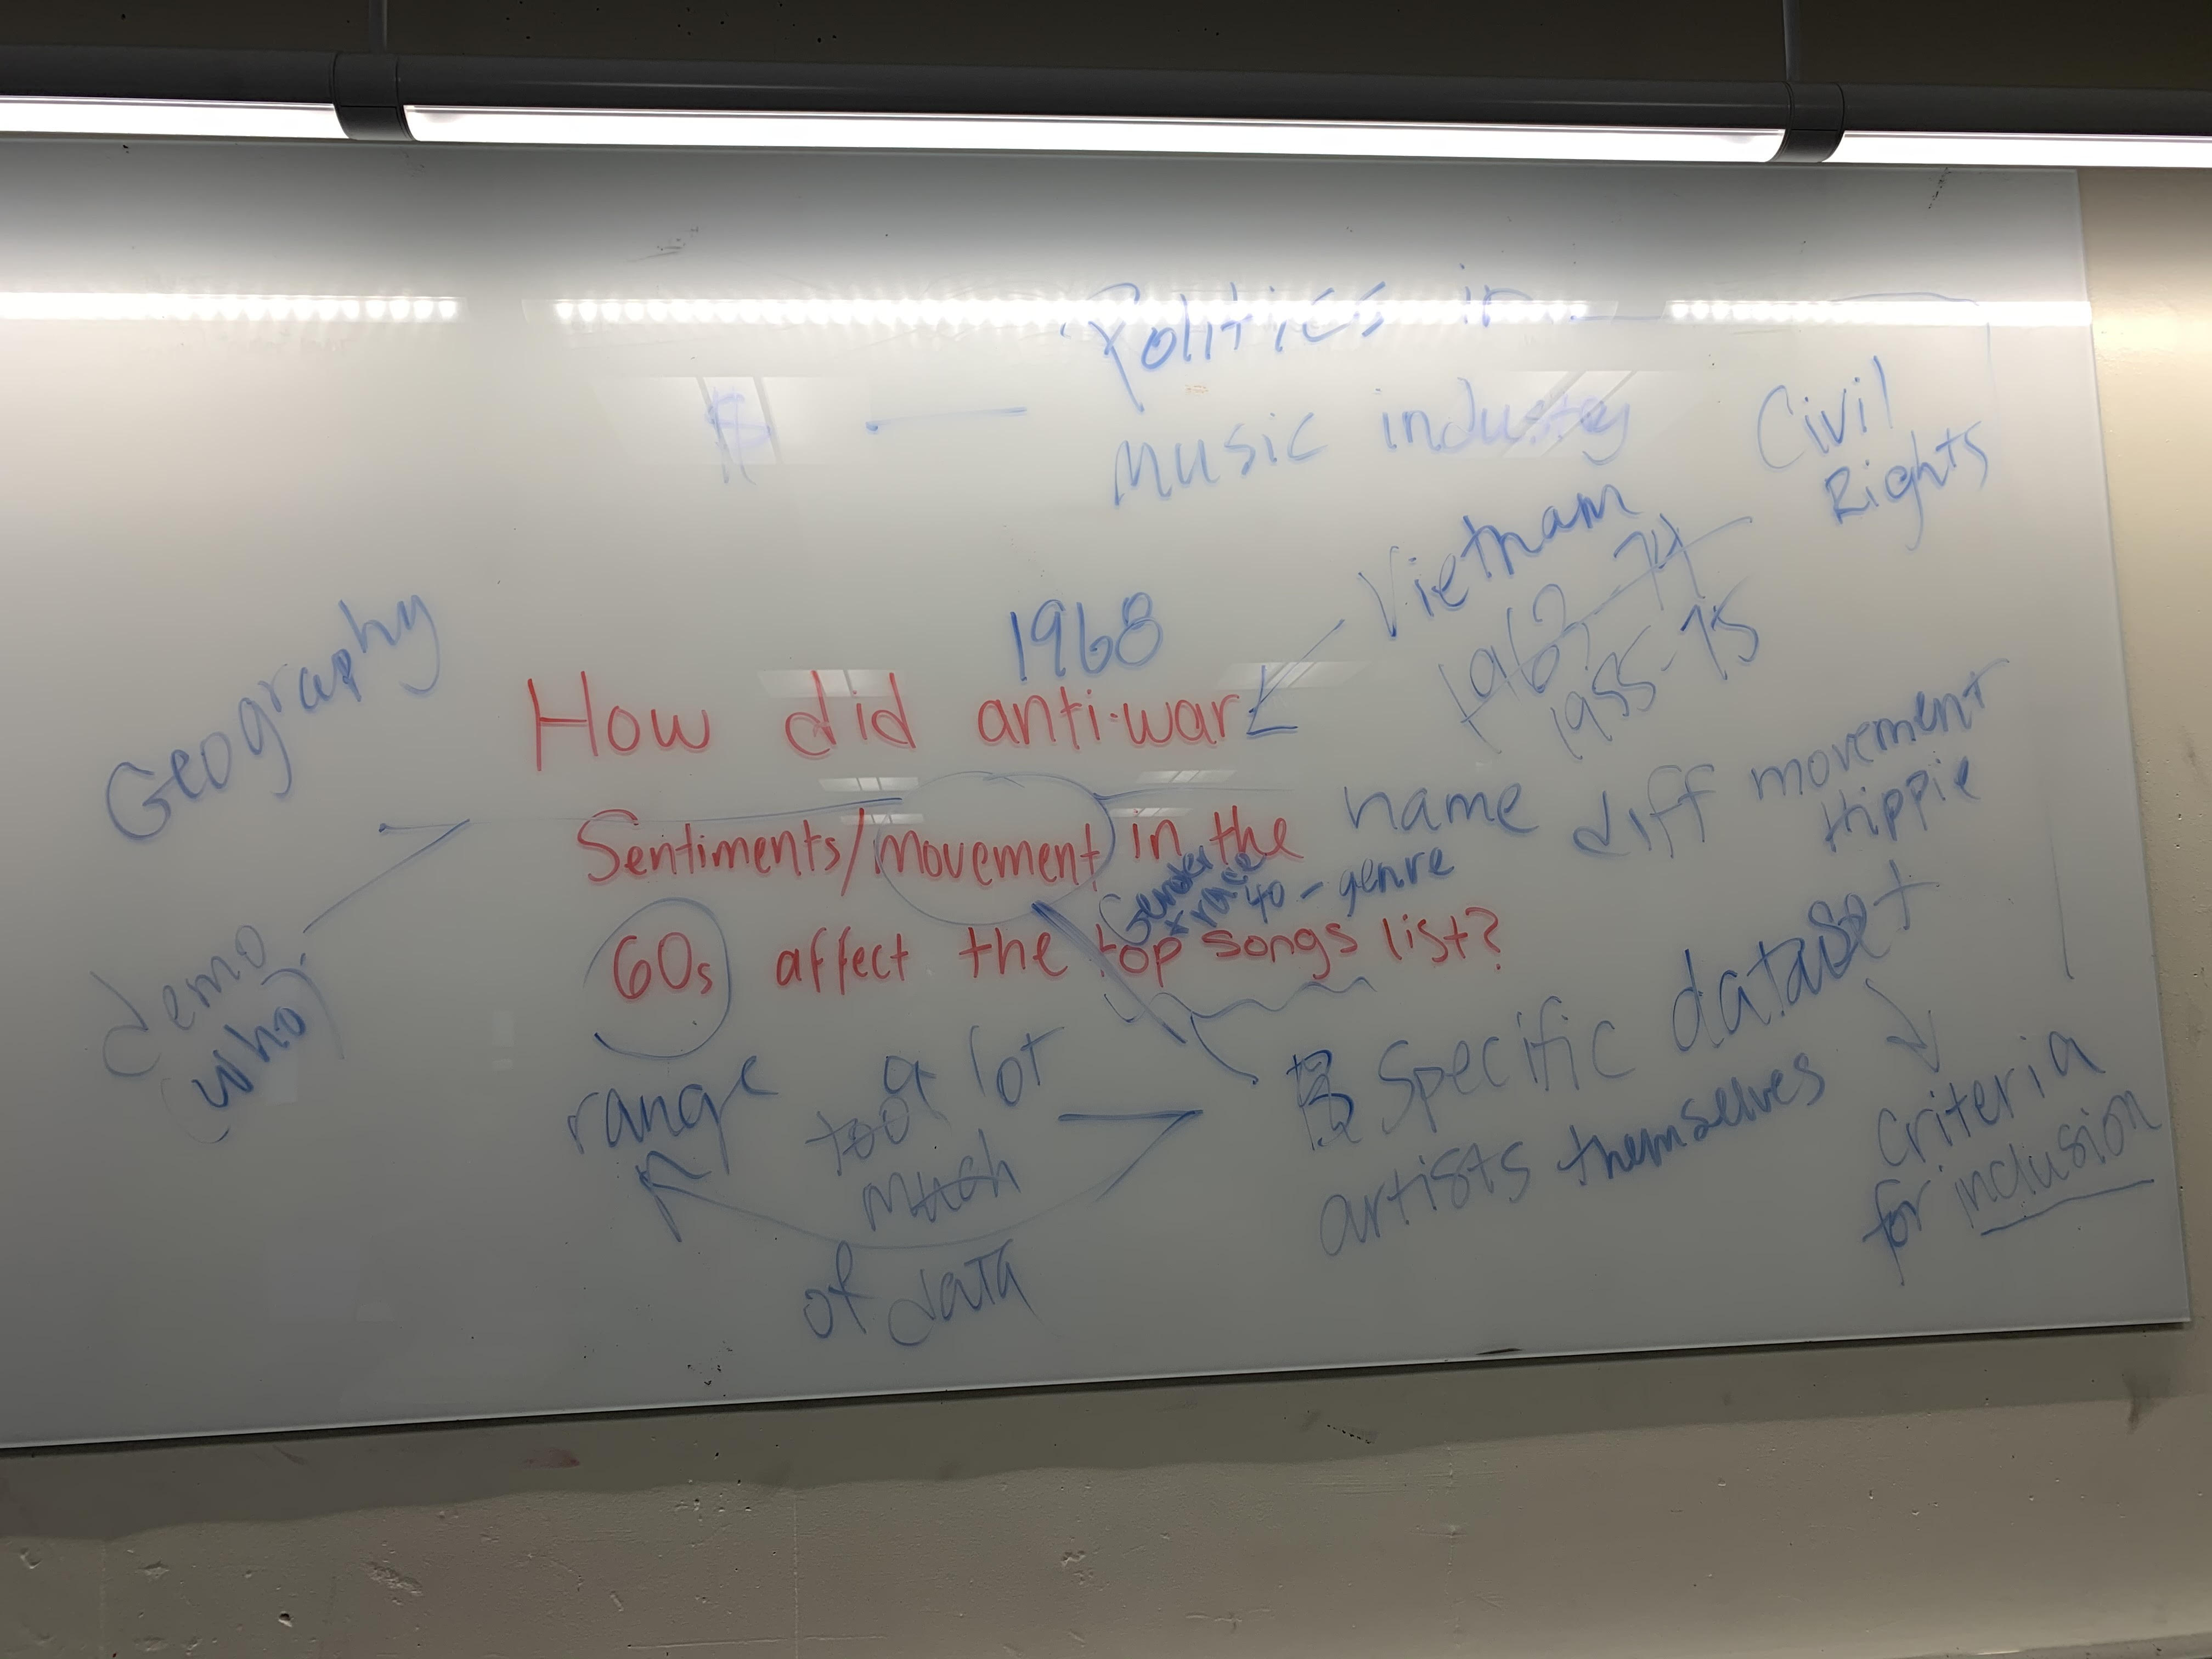 Politics in
$ — music industry
Civil
Rights
Vietnam
1962-74
1955-75
1968
Geography
How did anti-war
Sentiments/movement in the
name diff movement
Hippie
Gender
+ race
40 - genre
60s affect the top songs list?
demo
(who)
range
too a lot
much
of data
Specific dataset
artists themselves
Criteria
for inclusion